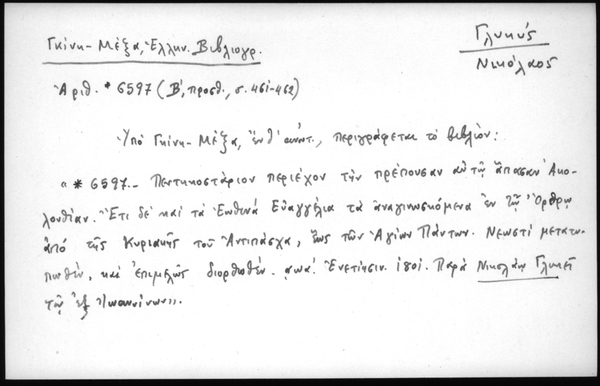 Γκίνη-Μέξα, Ἑλλην. Βιβλιογρ.
Γλυκύς
Νικόλαος
Ἀριθ. * 6597 (Β', προσθ., σ. 461-462)
Ὑπό Γκίνη-Μέξα, ἔνθ' ἀνωτ., περιγράφεται τό βιβλίον:
«* 6597.- Πεντηκοστάριον περιέχον τήν πρέπουσαν αὐτῷ ἅπασαν Ἀκο-
λουθίαν. Ἔτι δέ καί τά Ἑωθινά Εὐαγγέλια τά ἀναγινωσκόμενα ἐν τῷ Ὄρθρῳ
ἀπό τῆς Κυριακῆς τοῦ Ἀντιπάσχα, ἕως τῶν Ἁγίων Πάντων. Νεωστί μετατυ-
πωθέν, καί ἐπιμελῶς διορθωθέν. αωα'. Ἐνετίησιν. 1801. Παρά Νικολάῳ Γλυκεῖ
τῷ ἐξ Ἰωαννίνων».